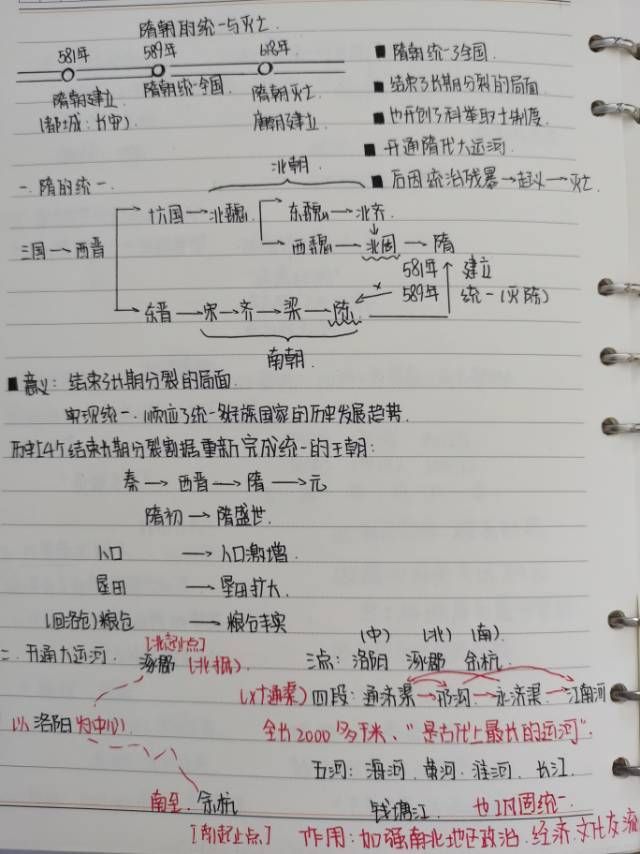 隋朝的统一与灭亡
581年 589年 618年
隋朝建立 隋朝统一全国 隋朝灭亡
(都城: 长安) 唐朝建立
■ 隋朝统一了全国
■ 结束了长期分裂的局面
■ 也开创了科举取士制度.
■ 开通隋代大运河
■ 后因统治残暴→起义→灭亡.
一. 隋的统一
北朝
十六国→北魏 东魏→北齐
三国→西晋 西魏→北周→隋
581年 建立
589年 统一(灭陈)
东晋→宋→齐→梁→陈
南朝
■ 意义: 结束了长期分裂的局面.
实现统一. 顺应了统一多民族国家的历史发展趋势.
历史上4个结束长期分裂割据重新完成统一的王朝:
秦→西晋→隋→元
隋初→隋盛世.
人口→人口激增.
垦田→垦田扩大.
(回洛仓)粮仓→粮仓丰实
二. 开通大运河.
[北起止点]
涿郡 (北抵).
以洛阳为中心
南至. 余杭
[南起止点]
(中) (北) (南).
三点: 洛阳 涿郡 余杭
四段: 通济渠→邗沟→永济渠→江南河
全长2000多千米、"是古代上最长的运河".
五河: 海河. 黄河. 淮河. 长江.
钱塘江. 也巩固统一.
作用: 加强南北地区政治. 经济. 文化交流